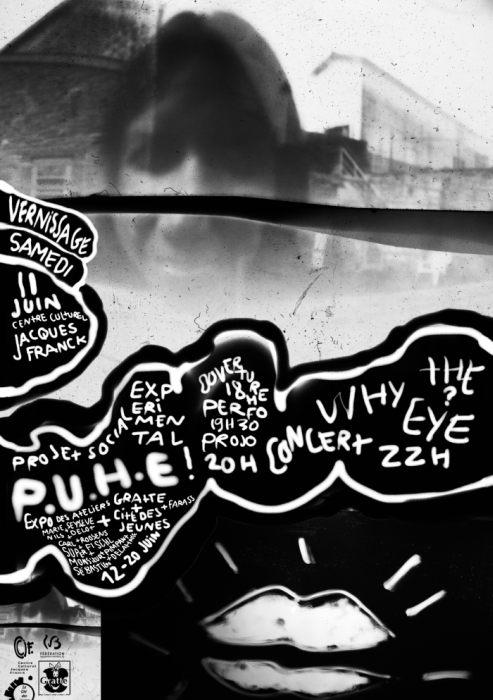 VERNISSAGE
SAMEDI
11
JUIN
CENTRE CULTUREL
JACQUES
FRANCK
PROJET SOCIAL
EXP
ERI
MEN
TAL
P.U.H.E!
OUVERTURE
18H
PERFO
19H30
PROJO
20H
CONCERT
WHY
THE
?
EYE
22H
EXPO DES ATELIERS
GRATTE
+
CITÉ DES
JEUNES
+ FARASS
MARIE
NILS
CARL ROOSENS
SÉBASTIEN DELAHAYE
12-20 JUIN
Centre
Culturel
Jacques
Franck
FÉDÉRATION
Gratte